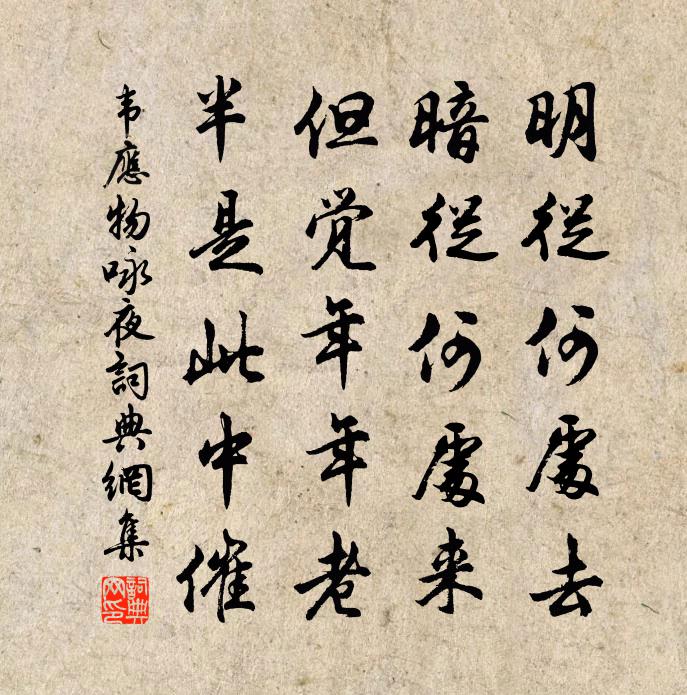 明從何處去
暗從何處来
但觉年年老
半是此中催
韦應物咏夜詞典網集
詞典
网印